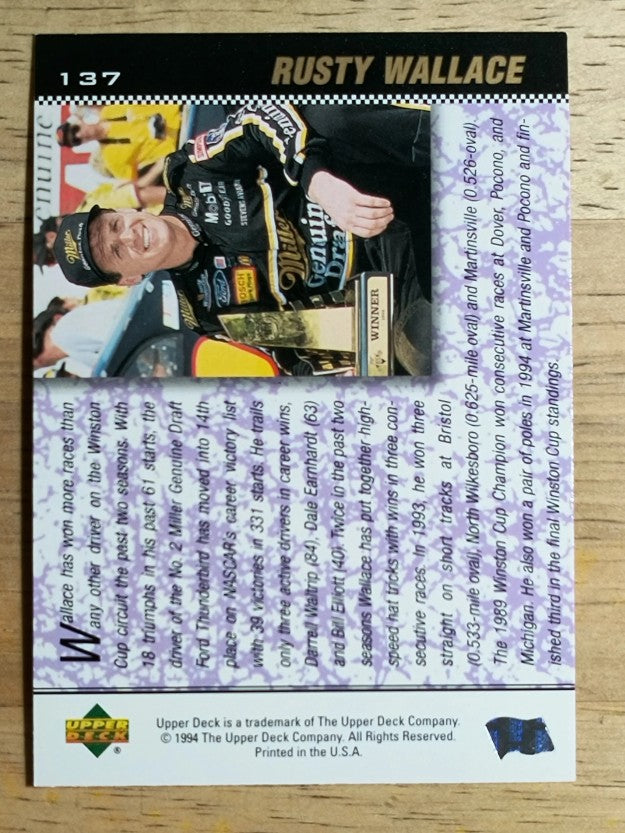 137
RUSTY WALLACE
enuine
Miller
Mobil 1
GOODYEAR
BOSCH
Ford
Miller
Genuine
Draft
WINNER
Wallace has won more races than
any other driver on the Winston
Cup circuit the past two seasons. With
18 triumphs in his past 61 starts, the
driver of the No. 2 Miller Genuine Draft
Ford Thunderbird has moved into 14th
place on NASCAR's career victory list
with 39 victories in 331 starts. He trails
only three active drivers in career wins,
Darrell Waltrip (84), Dale Earnhardt (63)
and Bill Elliott (40). Twice in the past two
seasons Wallace has put together high-
speed hat tricks with wins in three con-
secutive races. In 1993, he won three
straight on short tracks at Bristol
(0.533-mile oval), North Wilkesboro (0.625-mile oval) and Martinsville (0.526-oval).
The 1989 Winston Cup Champion won consecutive races at Dover, Pocono, and
Michigan. He also won a pair of poles in 1994 at Martinsville and Pocono and fin-
ished third in the final Winston Cup standings.
UPPER
DECK
®
Upper Deck is a trademark of The Upper Deck Company.
© 1994 The Upper Deck Company. All Rights Reserved.
Printed in the U.S.A.